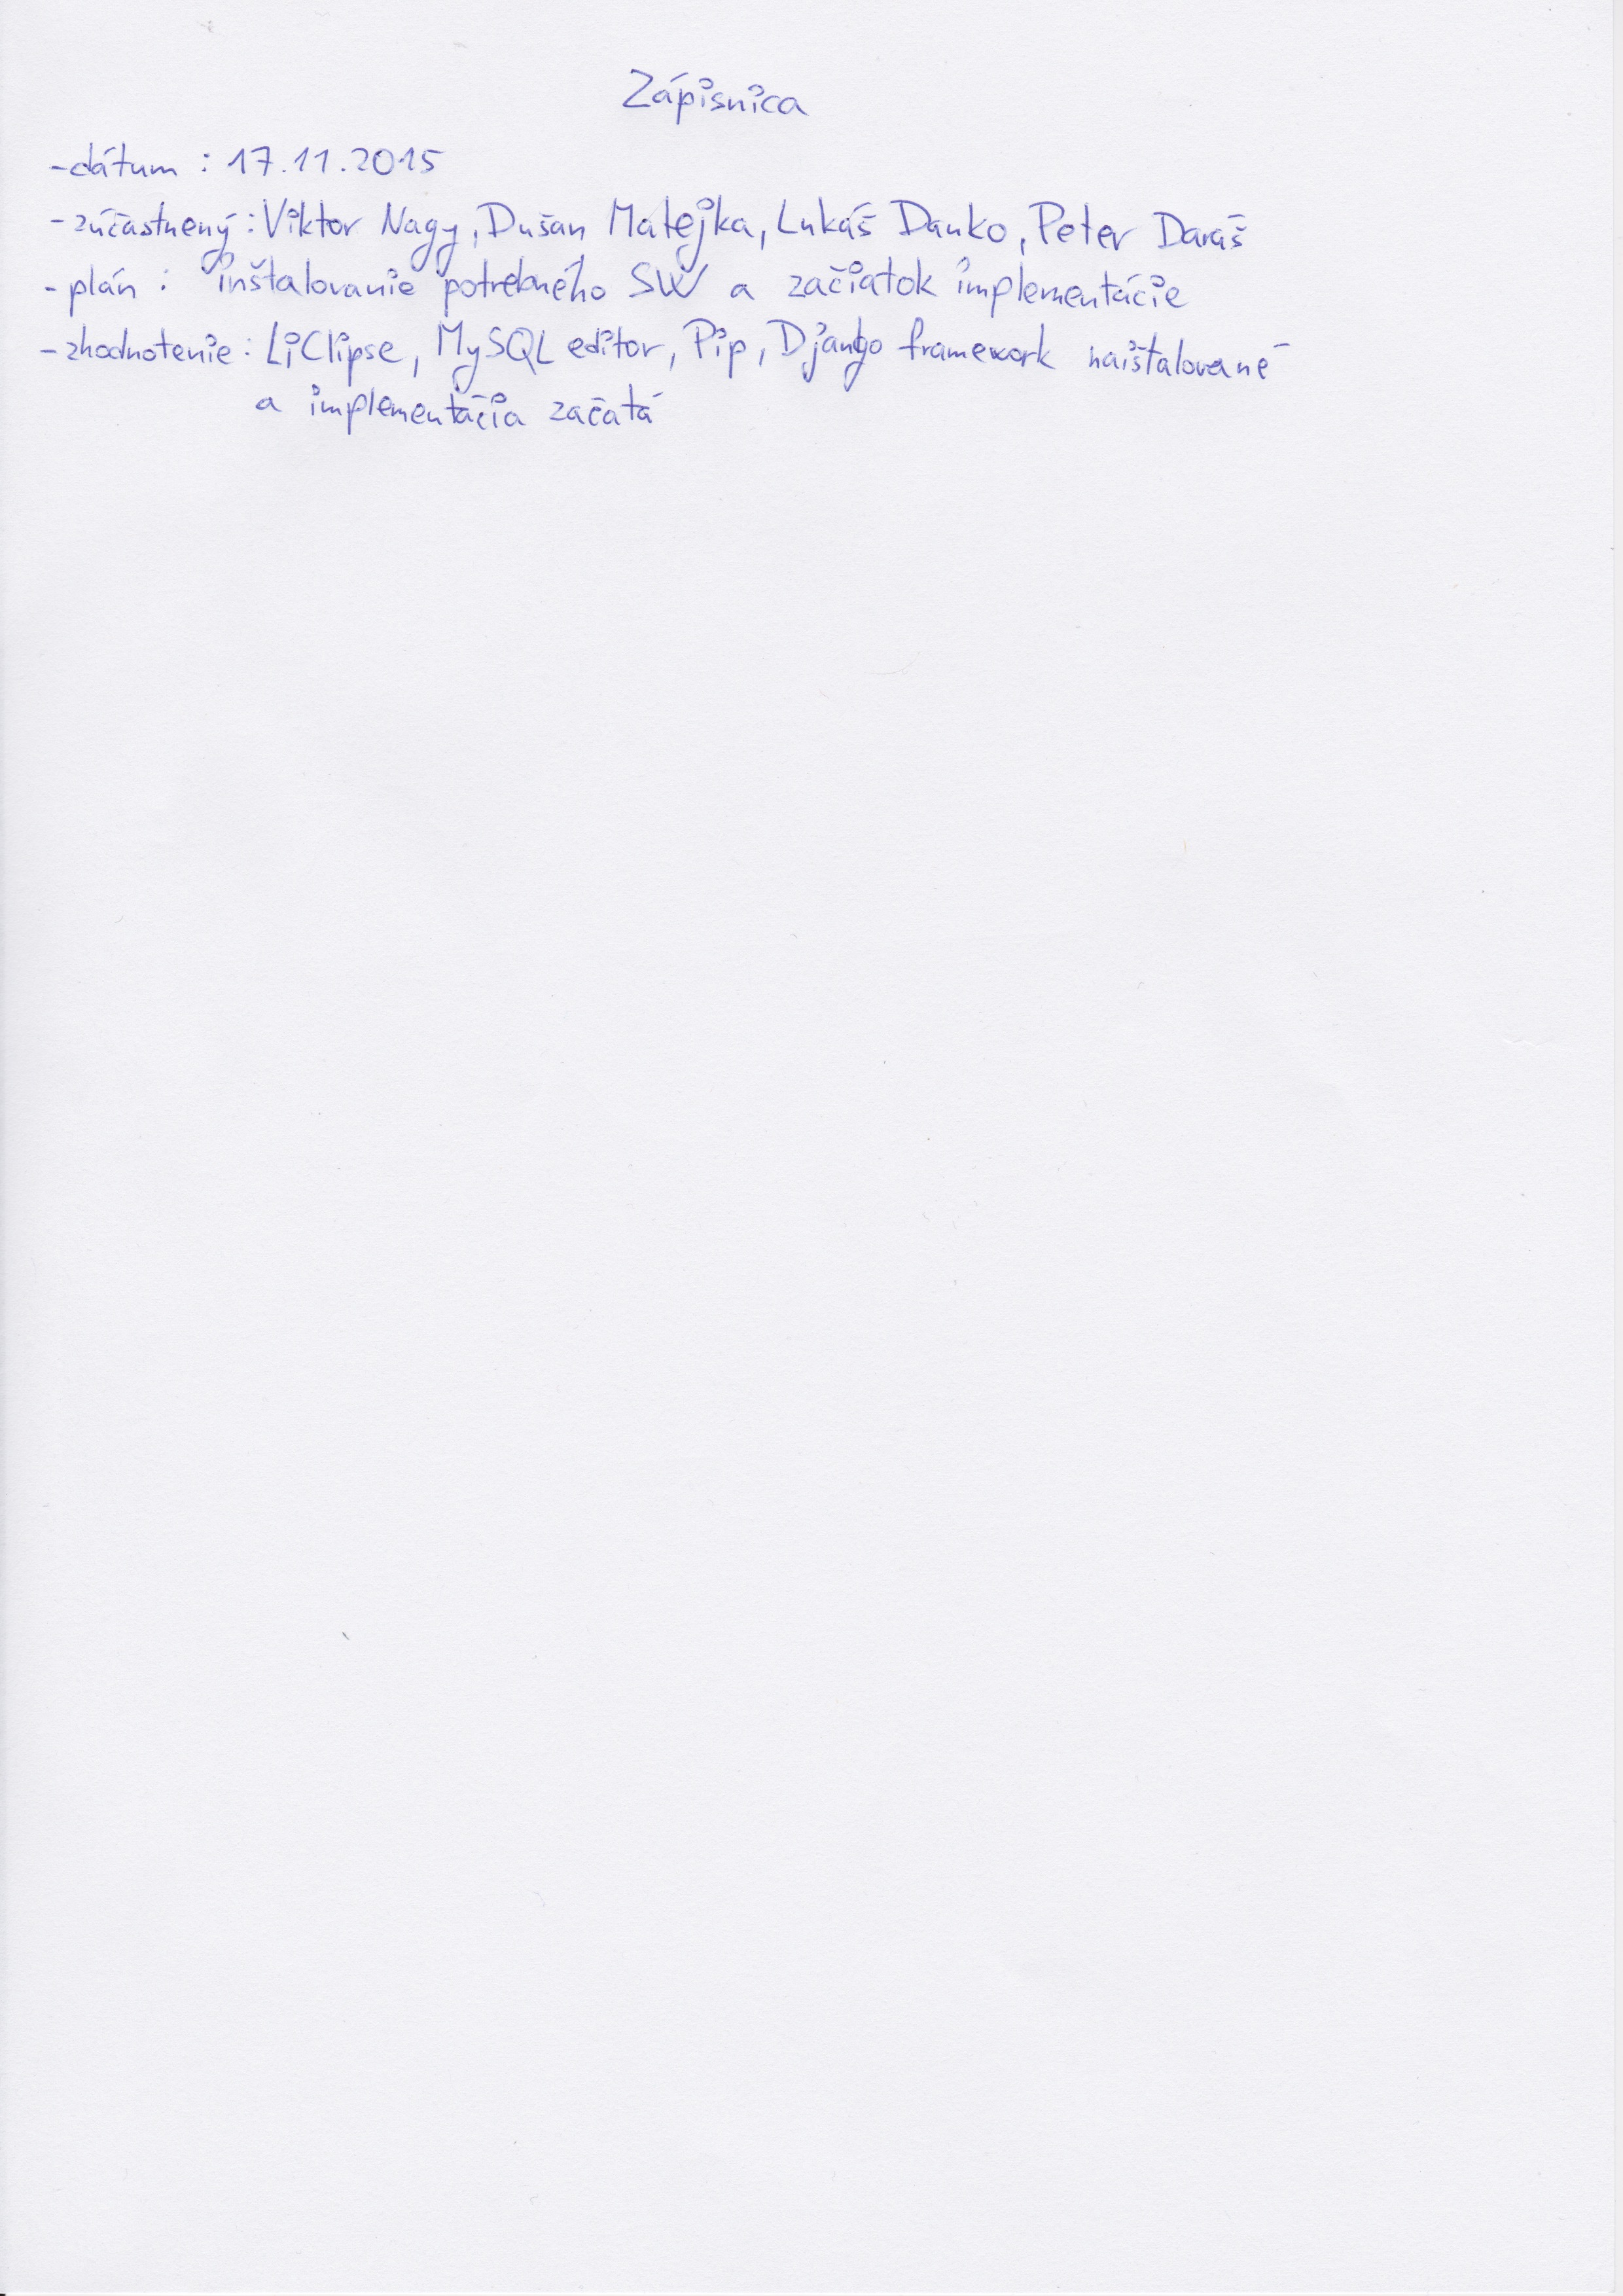 Zápisnica
- dátum : 17.11.2015
- zúčastnený : Viktor Nagy, Dušan Matejka, Lukáš Danko, Peter Daráš
- plán : inštalovanie potrebného SW a začiatok implementácie
- zhodnotenie : LiClipse, MySQL editor, Pip, Django framework naištalované
a implementácia začatá